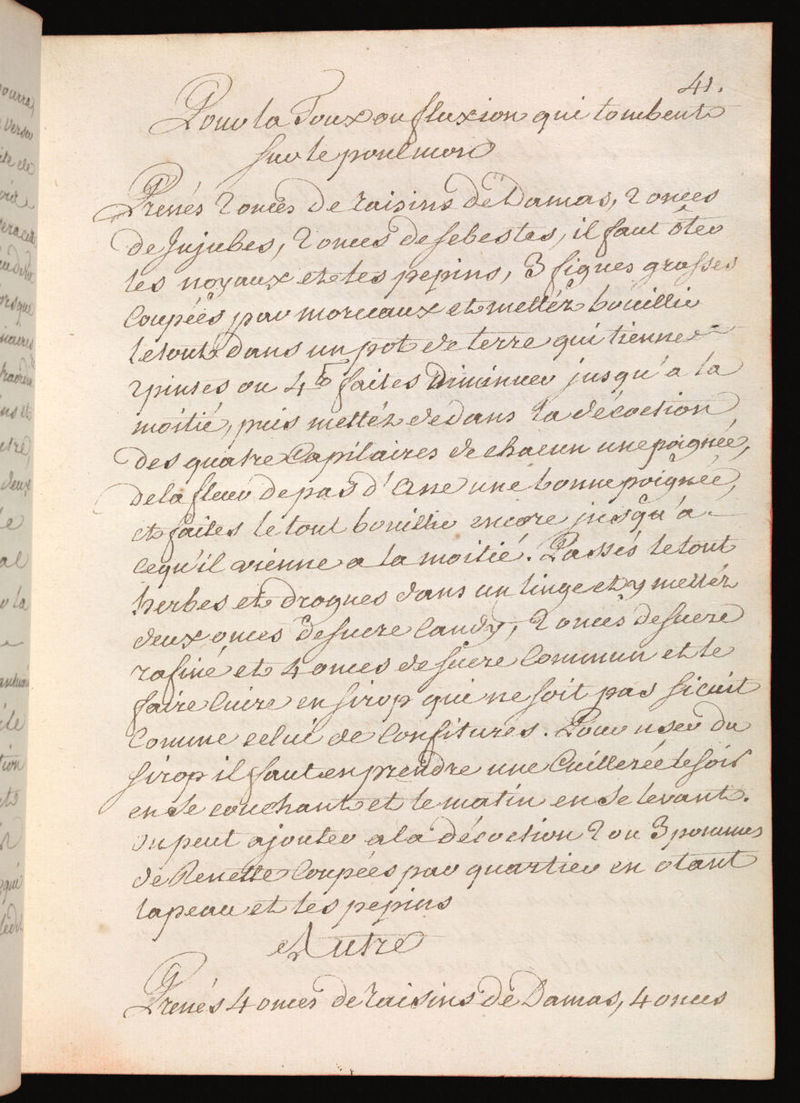 41.
Pour la Toux ou fluxion qui tombent
sur le poulmon
Prenés 2 onces de raisins de Damas, 2 onces
de Jujubes, 2 onces de sebestes, il faut ôter
les noyaux et les pepins, 3 figues grasses
Coupéés par morceaux et mettéz bouillir
le tout dans un pot de terre qui tienne
2 pintes ou 4 lb faites Diminuer jusqu'a la
moitié, puis mettéz dedans la décoction
des quatre Capilaires de chacun une poignéé,
de la fleur de pas d'Ane une bonne poignéé,
et faites le tout bouillir encore jusqu'a
cequ'il vienne a la moitié. Passés le tout
herbes et drogues dans un linge et y mettéz
deux onces de sucre Candy, 2 onces de sucre
rafiné et 4 onces de sucre Commun et le
faire Cuire en sirop qui ne soit pas si cuit
Comme celui de Confitures. Pour user du
sirop il faut en prendre une Cuillerée le soir
en se couchant et le matin en se levant.
on peut ajouter a la décoction 2 ou 3 pommes
de Renette Coupées par quartier en otant
la peau et les pepins
Autre
Prenés 4 onces de raisins de Damas, 4 onces